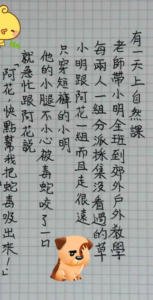 有一天上自然課
老師帶小明全班到郊外戶外教學
每兩人一組分派採集沒看過的草
小明跟阿花一組而且走很遠
只穿短褲的小明
他的小腿不小心被毒蛇咬了一口
就急忙跟阿花說
阿花,快點幫我把蛇毒吸出來!